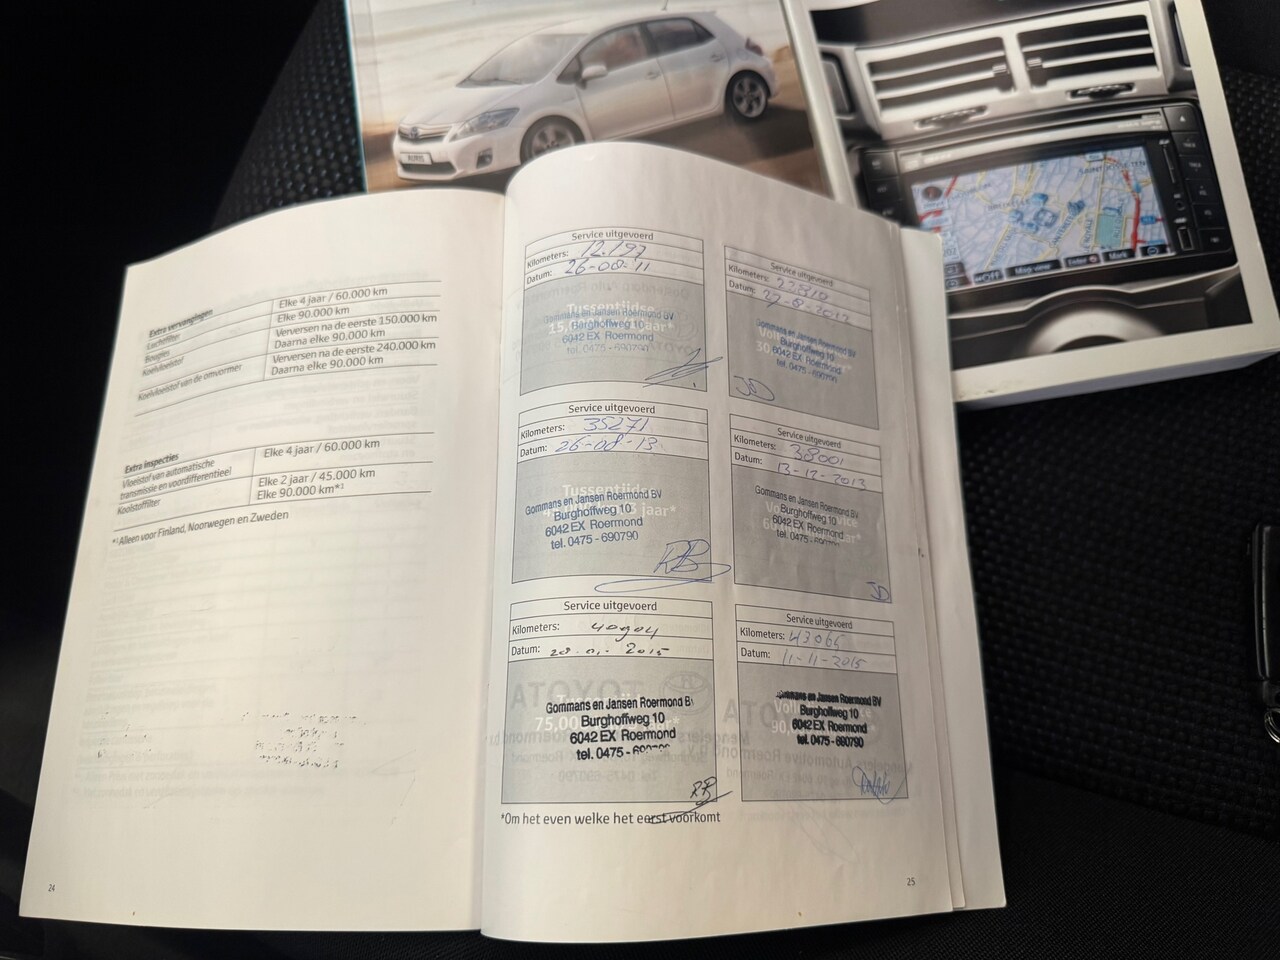 AURIS
Map view
Mark
Extra vervangingen
Luchtfilter Elke 4 jaar / 60.000 km
Bougies Elke 90.000 km
Koelvloeistof Verversen na de eerste 150.000 km
Daarna elke 90.000 km
Koelvloeistof van de omvormer Verversen na de eerste 240.000 km
Daarna elke 90.000 km
Extra inspecties
Vloeistof van automatische Elke 4 jaar / 60.000 km
transmissie en voordifferentieel
Koolstoffilter Elke 2 jaar / 45.000 km
Elke 90.000 km*¹
*¹ Alleen voor Finland, Noorwegen en Zweden
24
Service uitgevoerd
Kilometers: 12.193
Datum: 26-08-11
Tussentijdse
Gommans en Jansen Roermond BV
Burghoffweg 10
6042 EX Roermond
tel. 0475 - 690790
Service uitgevoerd
Kilometers:
Datum:
Gommans en Jansen Roermond BV
Burghoffweg 10
6042 EX Roermond
tel. 0475 - 690790
JD
Service uitgevoerd
Kilometers: 35271
Datum: 26-08-13
Tussentijdse
Gommans en Jansen Roermond BV
Burghoffweg 10
6042 EX Roermond
tel. 0475 - 690790
RB
Service uitgevoerd
Kilometers: 38001
Datum: 13-12-2013
Gommans en Jansen Roermond BV
Burghoffweg 10
6042 EX Roermond
tel. 0475 - 690790
JD
Service uitgevoerd
Kilometers: 40904
Datum: 2015
Gommans en Jansen Roermond BV
Burghoffweg 10
6042 EX Roermond
tel. 0475 - 690790
Service uitgevoerd
Kilometers: 43065
Datum: 11-11-2015
Gommans en Jansen Roermond BV
Burghoffweg 10
6042 EX Roermond
tel. 0475 - 690790
*Om het even welke het eerst voorkomt
25